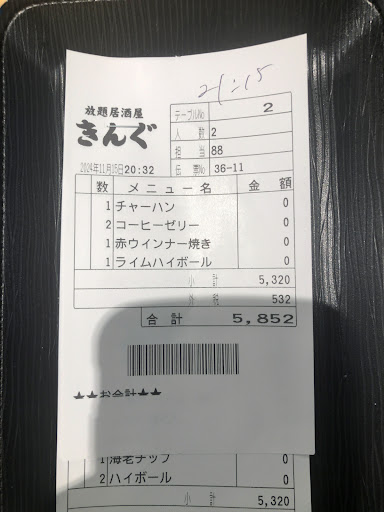 21:15
放題居酒屋
きんぐ
テーブルNo 2
人 数 2
担 当 88
2024年11月15日20:32
伝 票No 36-11
数 メニュー名 金 額
1 チャーハン 0
2 コーヒーゼリー 0
1 赤ウインナー焼き 0
1 ライムハイボール 0
小 計 5,320
532
合 計 5,852
★★お会計★★
1 海老チップ 0
2 ハイボール 0
小 計 5,320